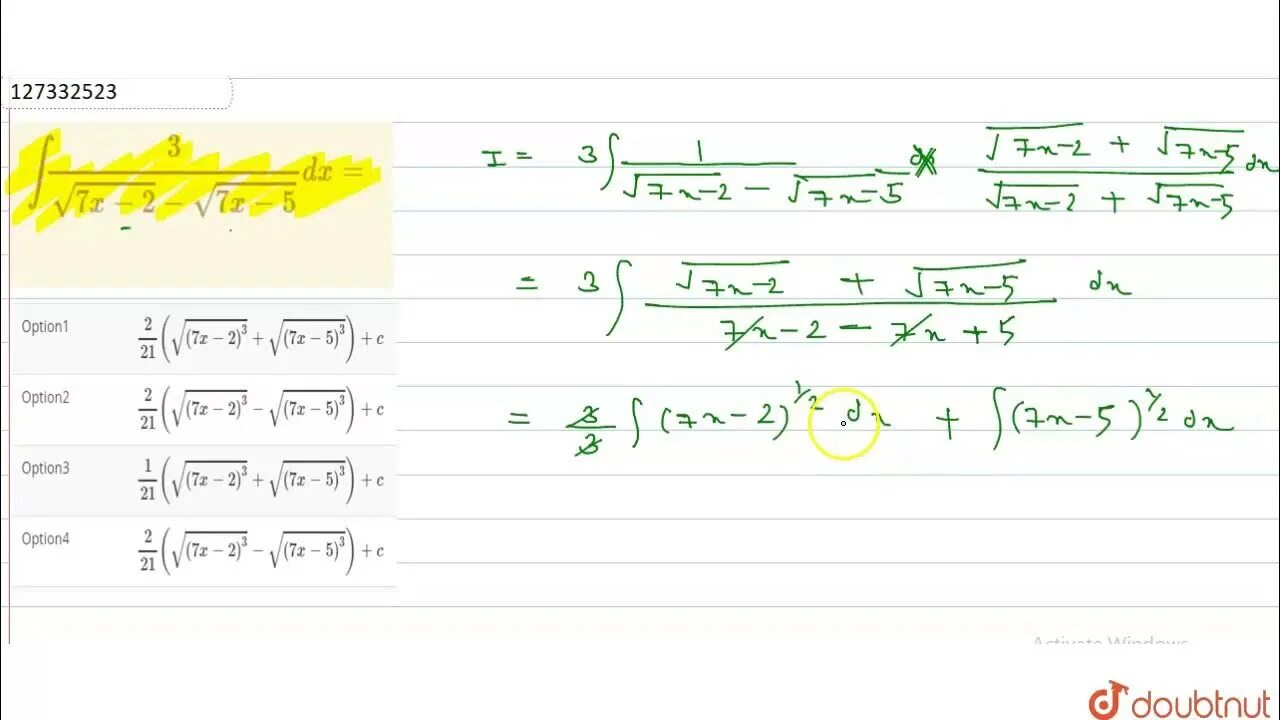 127332523
∫ 3/(√(7x − 2) − √(7x − 5)) dx =
Option1 2/21 (√((7x − 2)³) + √((7x − 5)³)) + c
Option2 2/21 (√((7x − 2)³) − √((7x − 5)³)) + c
Option3 1/21 (√((7x − 2)³) + √((7x − 5)³)) + c
Option4 2/21 (√((7x − 2)³) − √((7x − 5)³)) + c
I = 3 ∫ 1/(√(7x−2) − √(7x−5)) × (√(7x−2) + √(7x−5))/(√(7x−2) + √(7x−5)) dx
= 3 ∫ (√(7x−2) + √(7x−5))/(7x − 2 − 7x + 5) dx
= 3/3 ∫ (7x − 2)^1/2 dx + ∫ (7x − 5)^1/2 dx
Activate Windows
doubtnut